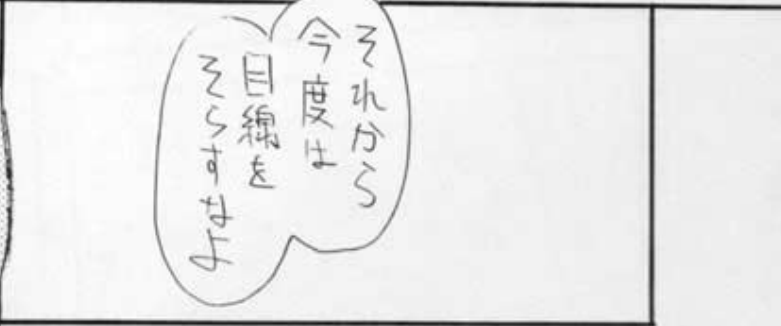 それから
今度は
目線を
そらすなよ